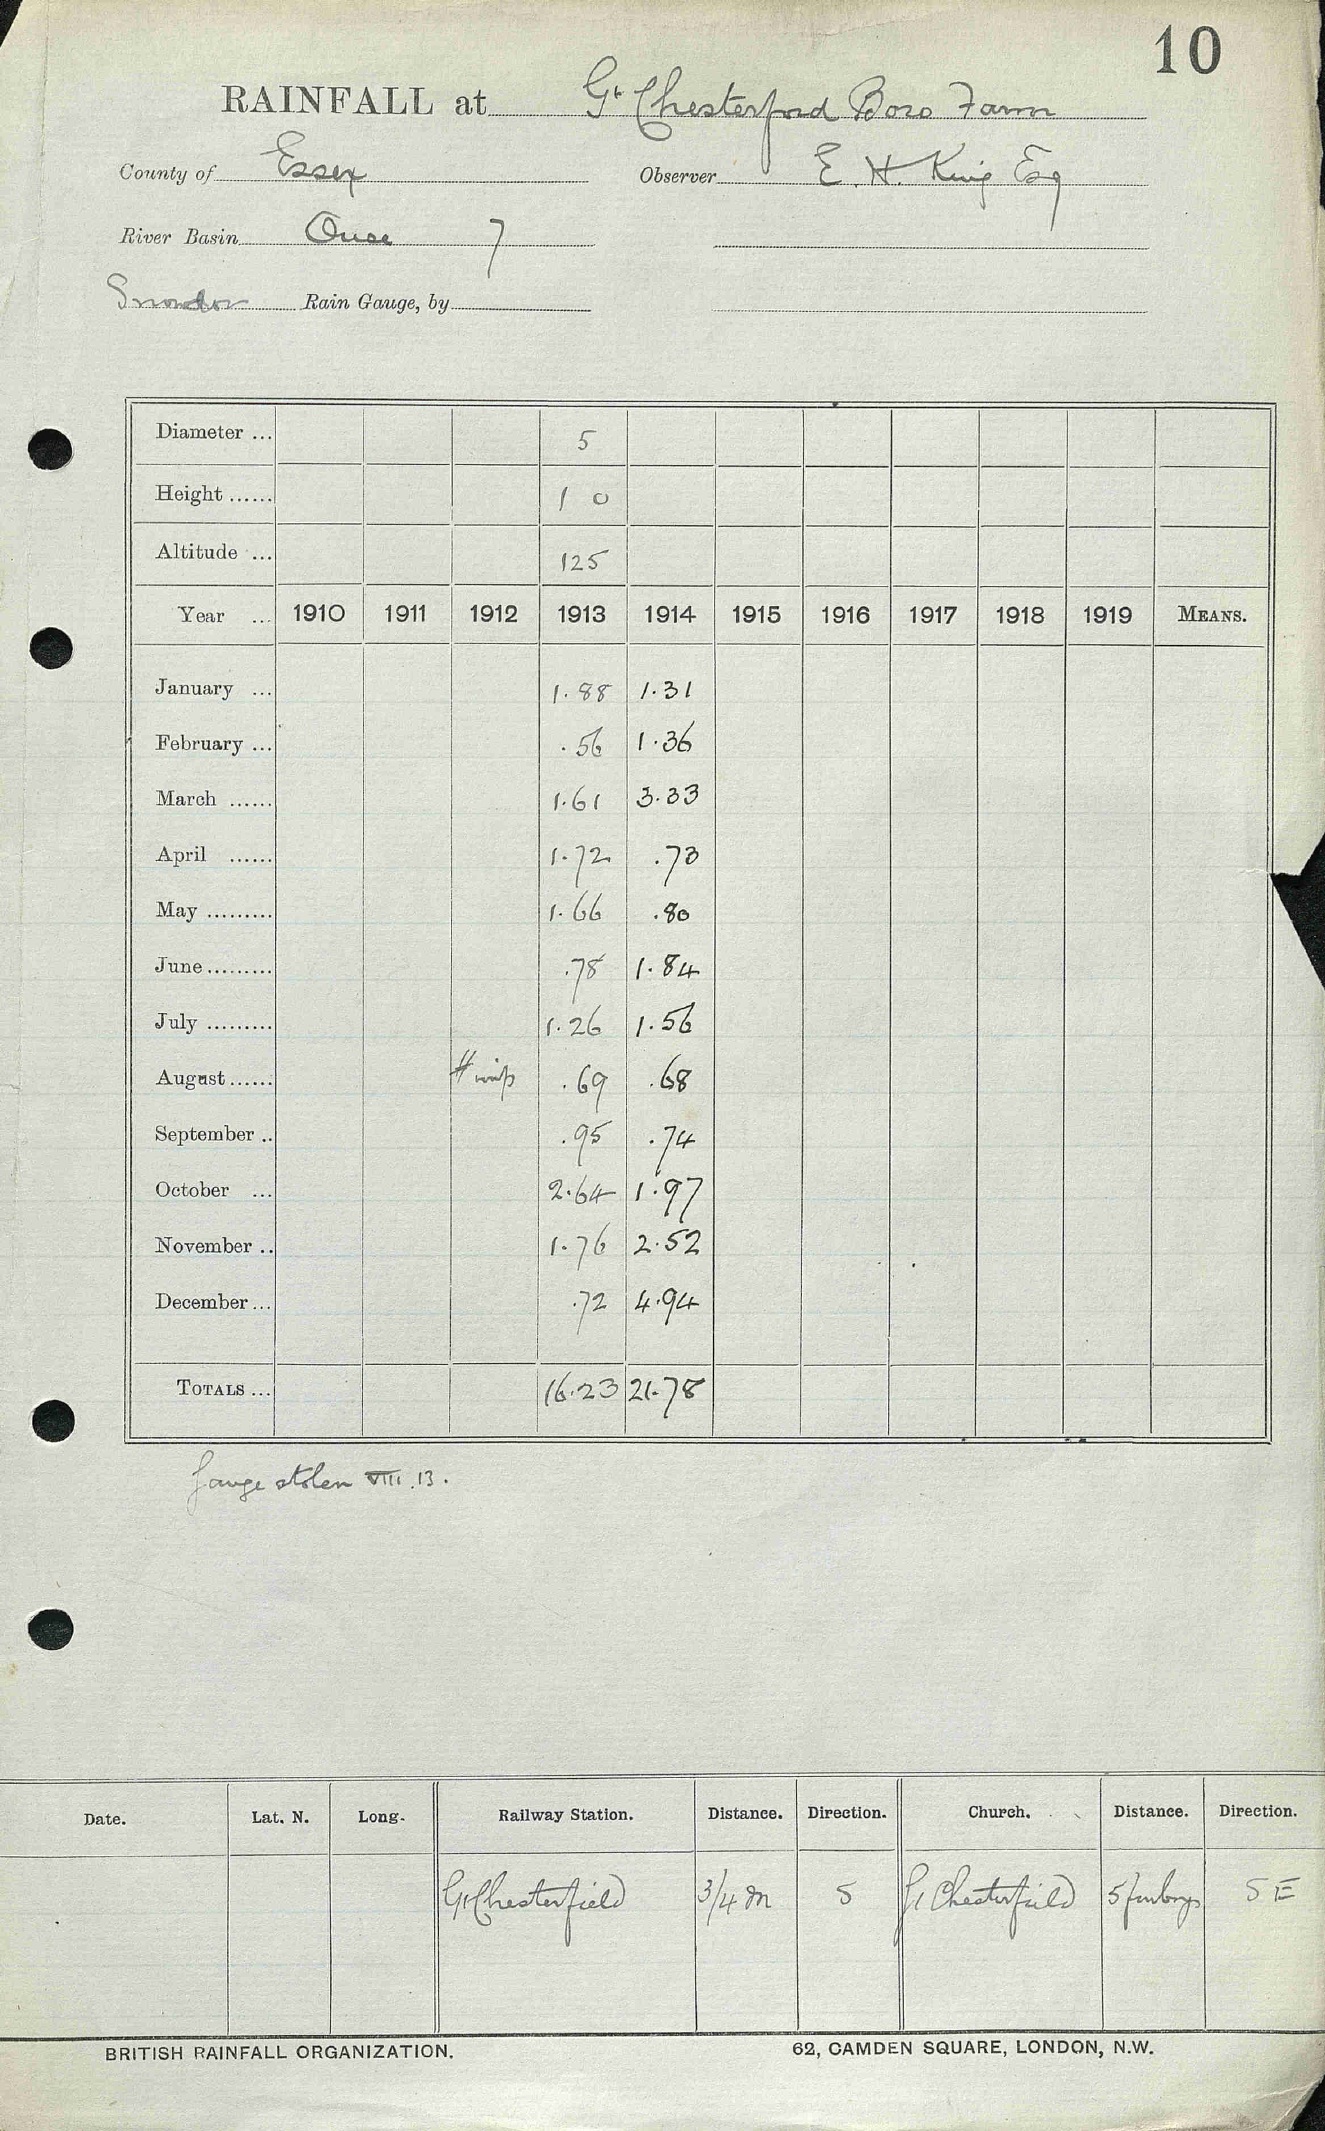 10
RAINFALL at Gt Chesterford Boro Farm
County of Essex Observer E. H. King Esq
River Basin Ouse 7
Snowdon Rain Gauge, by
Diameter ... 5
Height ...... 1 0
Altitude ... 125
Year ... 1910 1911 1912 1913 1914 1915 1916 1917 1918 1919 MEANS.
January ... 1.88 1.31
February ... .56 1.36
March ...... 1.61 3.33
April ...... 1.72 .73
May ......... 1.66 .80
June ......... .78 1.84
July ......... 1.26 1.56
August ...... .69 .68
September .. .95 .74
October ... 2.64 1.97
November .. 1.76 2.52
December ... .72 4.94
TOTALS ... 16.23 21.78
Gauge stolen VIII.13.
Date. Lat. N. Long. Railway Station. Distance. Direction. Church. Distance. Direction.
Gt Chesterfield 3/4 m S Gt Chesterfield 5 furlongs SE
BRITISH RAINFALL ORGANIZATION. 62, CAMDEN SQUARE, LONDON, N.W.